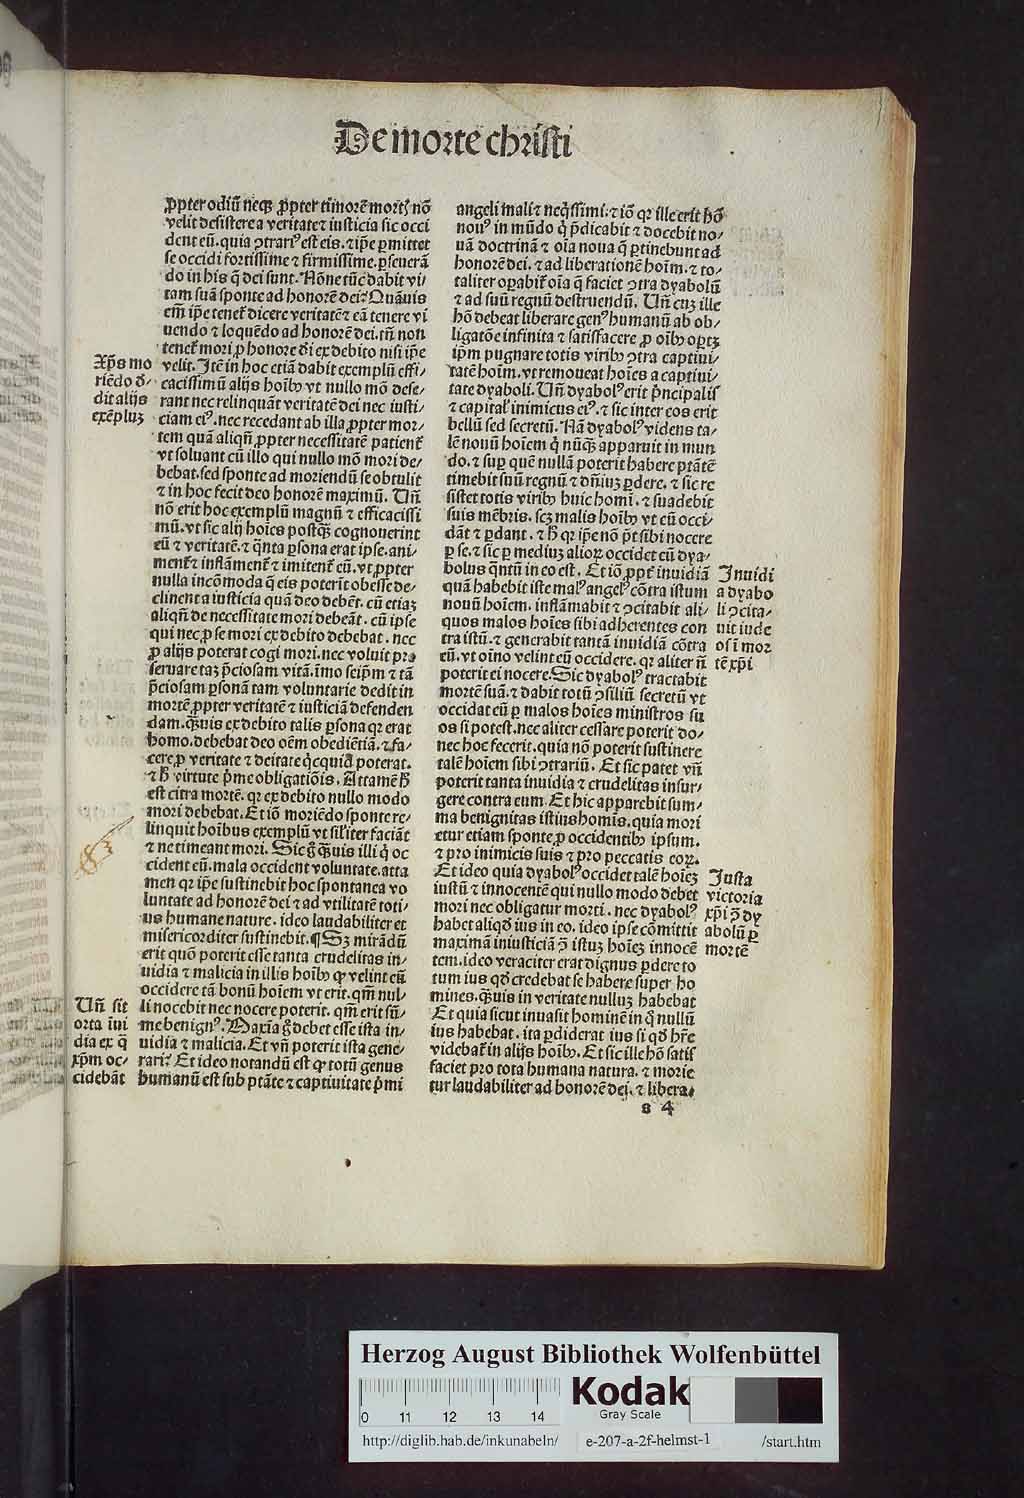 De morte christi
ꝓpter odiū neqꝫ ꝓpter timorē mortꝭ nō
velit desistere a veritate ⁊ iusticia sic occi
dent eū. quia ↄtrariꝰ est eis. ⁊ ip̄e ꝑmittet
se occidi fortissime ⁊ firmissime. ꝑseuerā
do in his q̄ dei sunt. Nōne tūc dabit vi⸗
tam suā sponte ad honorē dei? Quāuis
em̄ ip̄e tenet᷑ dicere veritatē ⁊ eā tenere vi
uendo ⁊ loquēdo ad honorē dei. tn̄ non
tenet᷑ mori ꝓ honore dei ex debito nisi ip̄e
velit. Itē in hoc etiā dabit exemplū effi⸗
cacissimū alijs hoībꝰ vt nullo mō dese⸗
rant nec relinquāt veritatē dei nec iusti⸗
ciam eiꝰ. nec recedant ab illa ꝓpter mor⸗
tem quā aliqn̄ ꝓpter necessitatē patient᷑
vt soluant cū illo qui nullo mō mori de⸗
bebat. sed sponte ad moriendū se obtulit
⁊ in hoc fecit deo honorē maximū. Un̄
nō erit hoc exemplū magnū ⁊ efficacissi
mū. vt sic alij hoīes postqꝫ cognouerint
eū ⁊ veritatē. ⁊ q̄nta ꝑsona erat ipse. ani⸗
ment᷑ ⁊ inflāment᷑ ⁊ imitent᷑ eū. vt ꝓpter
nulla incōmoda q̄ eis poterit obesse de⸗
clinent a iusticia quā deo debēt. cū etiaꝫ
aliqn̄ de necessitate mori debeāt. cū ipse
qui nec ꝓ se mori ex debito debebat. nec
ꝓ alijs poterat cogi mori. nec voluit pro
seruare taꝫ p̄ciosam vitā. īmo seip̄m ⁊ tā
p̄ciosam ꝑsonā tam voluntarie dedit in
mortē ꝓpter veritatē ⁊ iusticiā defenden
dam. qꝫuis ex debito talis ꝑsona qꝛ erat
homo. debebat deo oēm obediētiā. ⁊ fa⸗
cere ꝓ veritate ⁊ deitate qͥcquid poterat.
⁊ hͦ virtute pͥme obligatiōis. Attamē hͦ
est citra mortē. qꝛ ex debito nullo modo
mori debebat. Et iō moriēdo sponte re⸗
linquit hoībus exemplū vt sil̓iter faciāt
⁊ ne timeant mori. Sic gͦ qꝫuis illi qͥ oc
cident eū. mala occident voluntate. atta
men qꝛ ip̄e sustinebit hoc spontanea vo
luntate ad honorē dei ⁊ ad vtilitatē toti⸗
us humane nature. ideo laudabiliter et
misericorditer sustinebit. ¶ Sꝫ mirādū
erit quō poterit esse tanta crudelitas in⸗
uidia ⁊ malicia in illis hoībꝰ ꝙ velint eū
occidere tā bonū hoīem vt erit. qm̄ nul⸗
li nocebit nec nocere poterit. qm̄ erit sū⸗
me benignꝰ. Maxīa gͦ debet esse ista in⸗
uidia ⁊ malicia. Et vn̄ poterit ista gene⸗
rari? Et ideo notandū est ꝙ totū genus
humanū est sub ptāte ⁊ captiuitate pͥmi
Xp̄s mo
riēdo d⸗
dit alijs
exēpluꝫ
Un̄ sit
orta īui
dia ex q̄
xp̄m oc⸗
cidebāt
angeli mali ⁊ neqͥssimi. ⁊ iō qꝛ ille erit hō
nouꝰ in mūdo qͥ p̄dicabit ⁊ docebit no⸗
uā doctrinā ⁊ oīa noua q̄ ꝑtinebunt ad
honorē dei. ⁊ ad liberationē hoīm. ⁊ to⸗
taliter oꝑabit᷑ oīa q̄ faciet ↄtra dyabolū
⁊ ad suū regnū destruendū. Un̄ cuꝫ ille
hō debeat liberare genꝰ humanū ab ob⸗
ligatōe infinita ⁊ satisfacere ꝓ oībꝰ oꝑtꝫ
ip̄m pugnare totis viribꝰ ↄtra captiui⸗
tatē hoīm. vt remoueat hoīes a captiui⸗
tate dyaboli. Un̄ dyabolꝰ erit pͥncipalis
⁊ capital̓ inimicus eiꝰ. ⁊ sic inter eos erit
bellū sed secretū. Nā dyabolꝰ videns ta⸗
lē nouū hoīem qͥ nūqꝫ apparuit in mun
do. ⁊ suꝑ quē nullā poterit habere ptātē
timebit suū regnū ⁊ dn̄iuꝫ ꝑdere. ⁊ sic re
sistet totis viribꝰ huic homī. ⁊ suadebit
suis mēbris. scꝫ malis hoībꝰ vt eū occi⸗
dāt ⁊ ꝑdant. ⁊ hͦ qꝛ ip̄e nō pt̄ sibi nocere
ꝑ se. ⁊ sic ꝑ mediuꝫ alioꝝ occidet eū dya⸗
bolus qͣntū in eo est. Et iō ꝓpt̄ inuidiā
quā habebit iste malꝰ angelꝰ cōtra istum
nouū hoīem. inflāmabit ⁊ ↄcitabit ali⸗
quos malos hoīes sibi adherentes con
tra istū. ⁊ generabit tantā inuidiā cōtra
eū. vt oīno velint eū occidere. qꝛ aliter n̄
poterit ei nocere. Sic dyabolꝰ tractabit
mortē suā. ⁊ dabit totū ↄsiliū secretū vt
occidat eū ꝑ malos hoīes ministros su
os si potest. nec aliter cessare poterit do⸗
nec hoc fecerit. quia nō poterit sustinere
talē hoīem sibi ↄtrariū. Et sic patet vn̄
poterit tanta inuidia ⁊ crudelitas insur⸗
gere contra eum. Et hic apparebit sum⸗
ma benignitas istius homīs. quia mori
etur etiam sponte ꝓ occidentibꝰ ipsum.
⁊ pro inimicis suis ⁊ pro peccatis eoꝝ.
Et ideo quia dyabolꝰ occidet talē hoīeꝫ
iustū ⁊ innocentē qui nullo modo debet
mori nec obligatur morti. nec dyabolꝰ
habet aliqd̓ ius in eo. ideo ipse cōmittit
maximā iniusticiā ↄ̄ istuꝫ hoīeꝫ innocē
tem. ideo veraciter erat dignus ꝑdere to
tum ius qd̓ credebat se habere super ho
mines. qꝫuis in veritate nulluꝫ habebat
Et quia sicut inuasit hominē in qͥ nullū
ius habebat. ita ꝑdiderat ius si qd̓ hr̄e
videbat᷑ in alijs hoībꝰ. Et sic ille hō satis
faciet pro tota humana natura. ⁊ morie
tur laudabiliter ad honorē dei. ⁊ libera⸗
Inuidi
a dyabo
li ↄcita⸗
uit iude
os ī mor
tē xp̄i
Iusta
victoria
xp̄i ↄ̄ dy
abolū ꝑ
mortē
s 4
Herzog August Bibliothek Wolfenbüttel
Kodak
Gray Scale
0 11 12 13 14
http://diglib.hab.de/inkunabeln/ e-207-a-2f-helmst-1 /start.htm